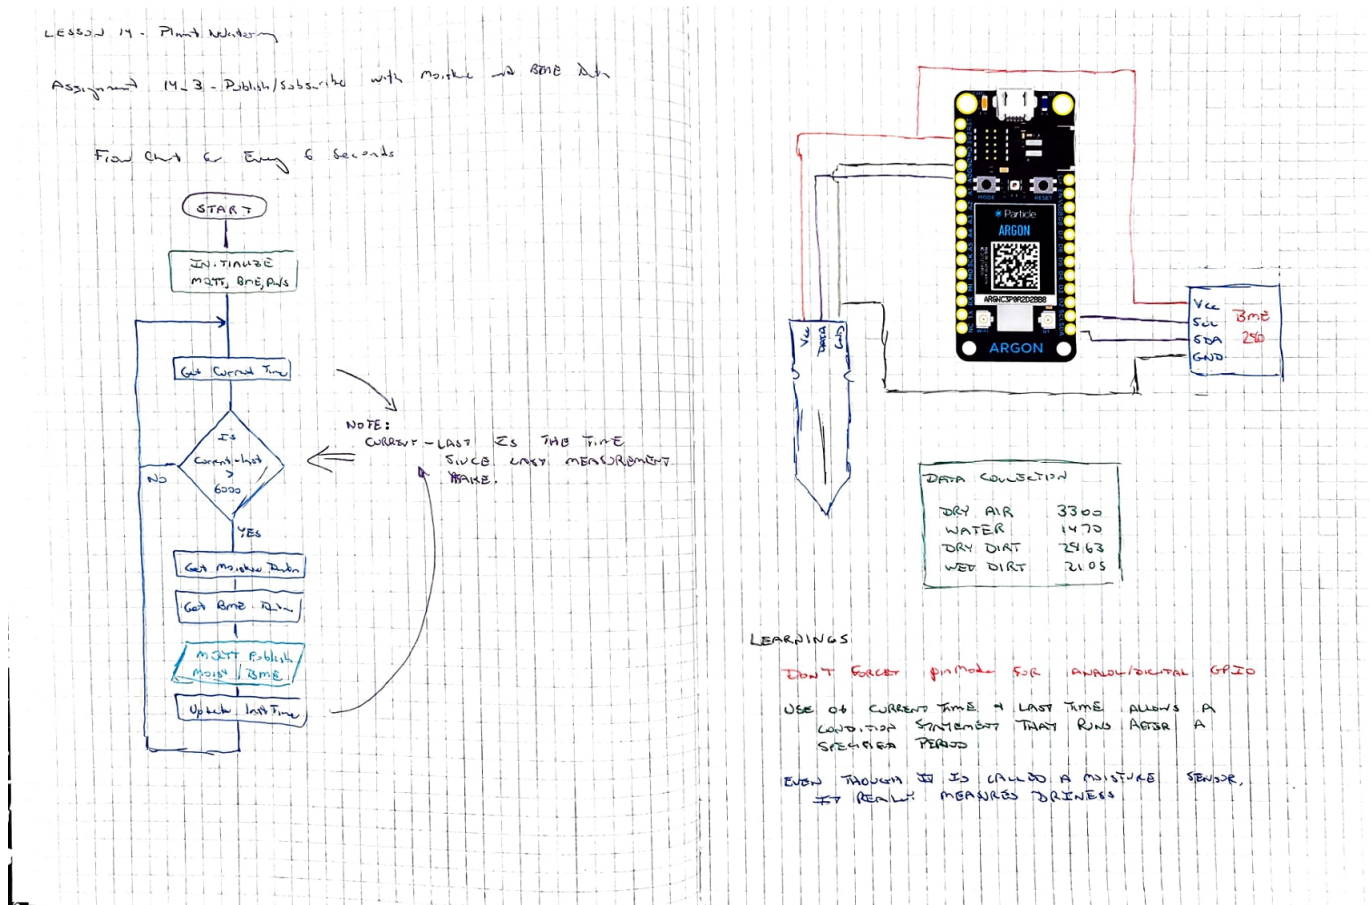 LESSON 14 - Plant Watering
Assignment 14_3 - Publish/Subscribe with Moisture and BME Data
Flow Chart for Every 6 Seconds
START
INITIALIZE
MQTT, BME, PINS
Get Current Time
IS
Current-last
>
6000
NO
YES
Get Moisture Data
Get BME Data
MQTT Publish
Moist / BME
Update lastTime
NOTE:
CURRENT-LAST IS THE TIME
SINCE LAST MEASUREMENT
Vcc
DATA
GND
MODE
RESET
Particle
ARGON
ARGNC3P0R2D2BB8
ARGON
Vcc
SCL
SDA
GND
BME
280
DATA COLLECTION
DRY AIR 3300
WATER 1470
DRY DIRT
WET DIRT 2105
LEARNINGS
DON'T FORGET pinMode FOR ANALOG/DIGITAL GPIO
USE OF CURRENT TIME & LAST TIME ALLOWS A
CONDITION STATEMENT THAT RUNS AFTER A
SPECIFIED PERIOD
EVEN THOUGH IT IS CALLED A MOISTURE SENSOR,
IT REALLY MEASURES DRINESS